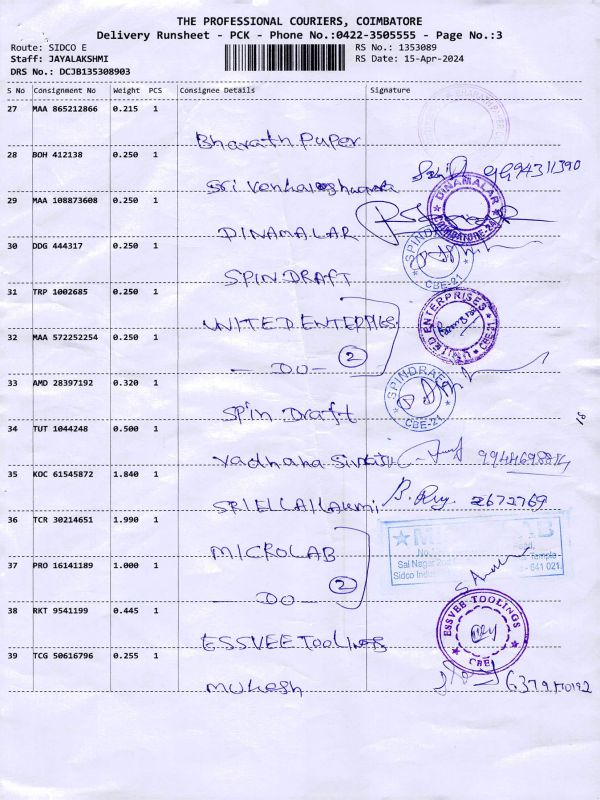 THE PROFESSIONAL COURIERS, COIMBATORE
Delivery Runsheet - PCK - Phone No.:0422-3505555 - Page No.:3
Route: SIDCO E RS No.: 1353089
Staff: JAYALAKSHMI RS Date: 15-Apr-2024
DRS No.: DCJB135308903
S No Consignment No Weight PCS Consignee Details Signature
27 MAA 865212866 0.215 1
Bharath Paper
28 BOH 412138 0.250 1
Sri Venkateshwara 9994311390
29 MAA 108873608 0.250 1
DINAMALAR DINAMALAR COIMBATORE-24
30 DDG 444317 0.250 1
SPINDRAFT SPINDRAFT CBE-21
31 TRP 1002685 0.250 1
UNITED ENTERPRISES UNITED ENTERPRISES CBE-21
32 MAA 572252254 0.250 1
- DO - 2
33 AMD 28397192 0.320 1
Spin Draft SPINDRAFT CBE-21
34 TUT 1044248 0.500 1
35 KOC 61545872 1.840 1
B. Roy. 2672769
36 TCR 30214651 1.990 1
MICROLAB
Sai Nagar Temple
Sidco Indu - 641 021
37 PRO 16141189 1.000 1
DO - 2
38 RKT 9541199 0.445 1
ESSVEE TOOLINGS ESSVEE TOOLINGS CBE
39 TCG 50616796 0.255 1
Mukesh
81